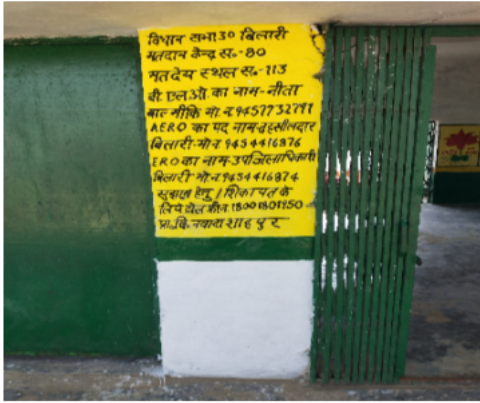 विधान सभा 30 बिलारी
मतदान केन्द्र स०-80
मतदेय स्थल स०-113
बी.एल.ओ का नाम-नीता
बाल्मीकि मो.न.9457732791
AERO का पद नाम-तहसीलदार
बिलारी-मो.न.9454416876
ERO का नाम-उपजिलाधिकारी
बिलारी मो.न.9454416874
सुझाव हेतु / शिकायत के
लिये हेल्प लीन.18001801950
प्रा.वि.नवादा शाहपुर